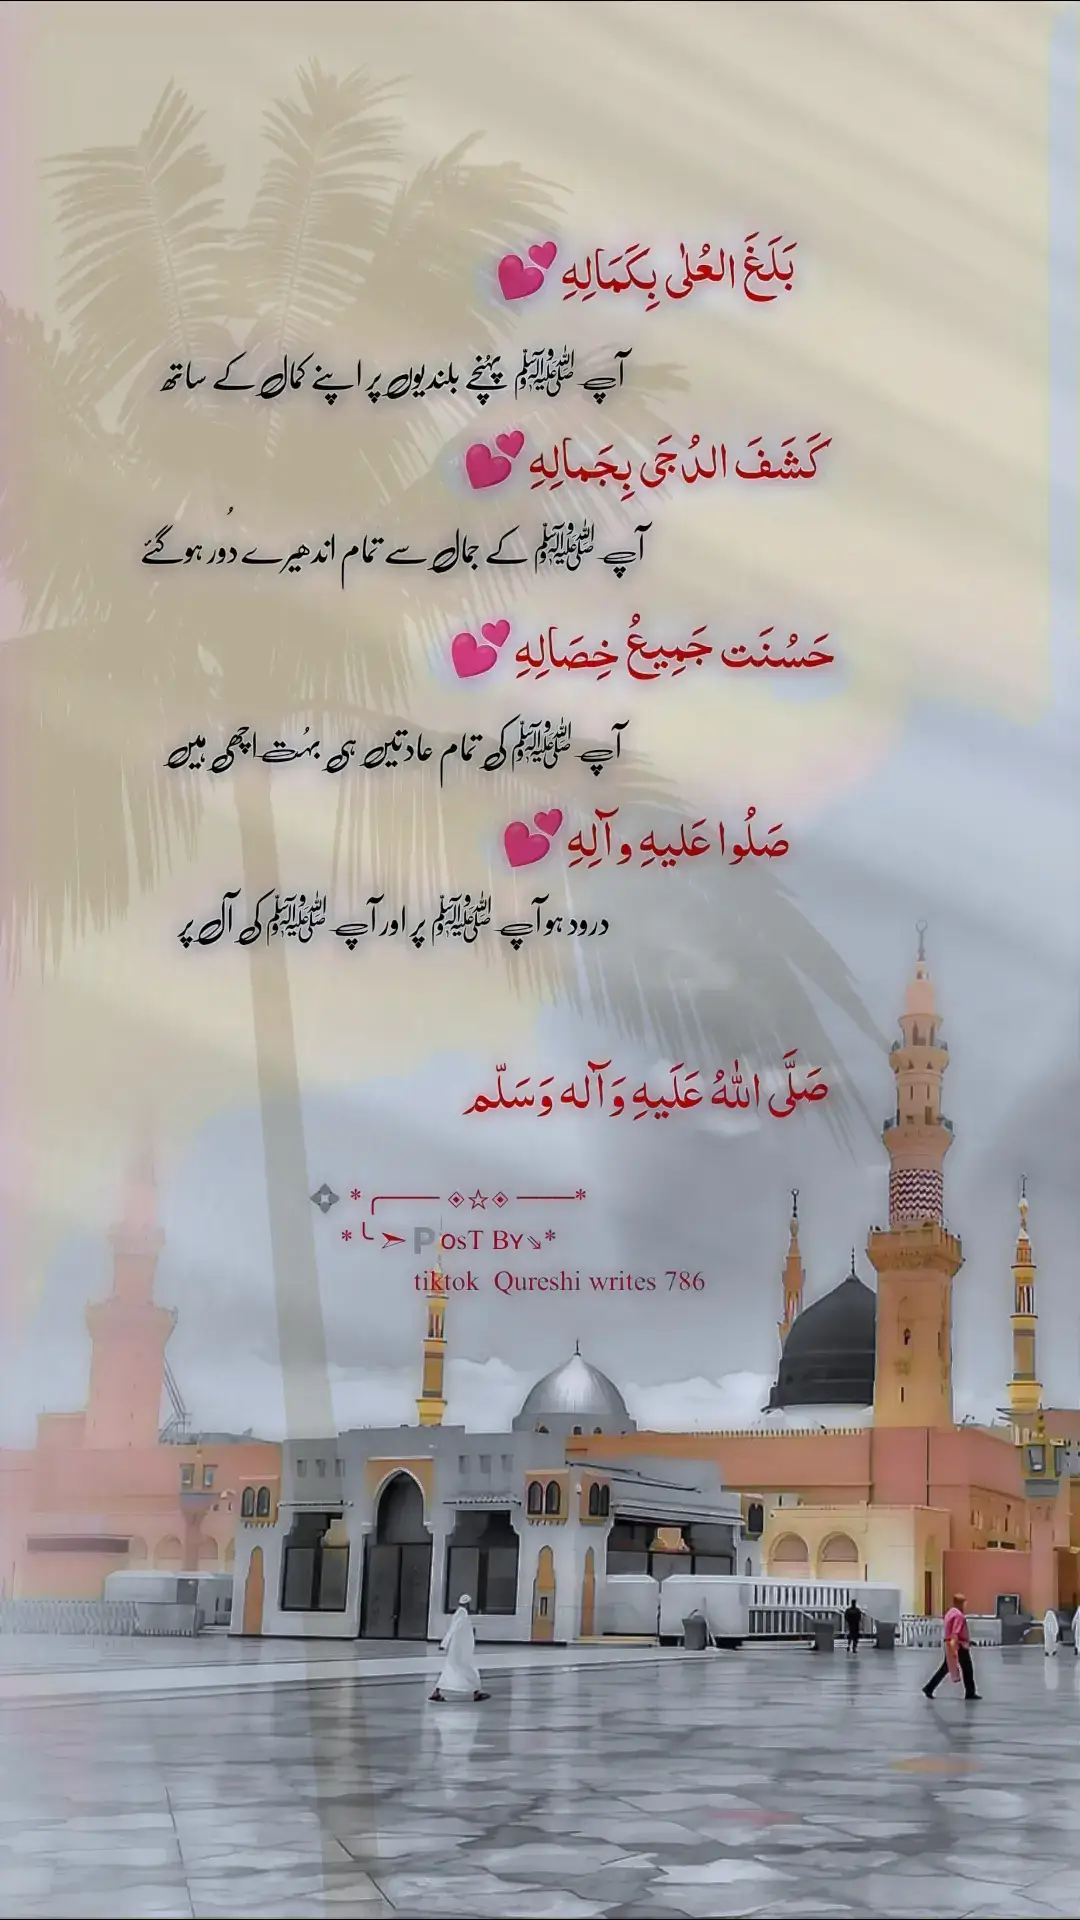 بَلَغَ العُلٰى بِكَمَالِهِ 💕
آپ ﷺ پہنچے بلندیوں پر اپنے کمال کے ساتھ
كَشَفَ الدُجَى بِجَمالِهِ 💕
آپ ﷺ کے جمال سے تمام اندھیرے دُور ہو گئے
حَسُنَت جَمِيعُ خِصَالِهِ 💕
آپ ﷺ کی تمام عادتیں ہی بہُت اچھی ہیں
صَلُوا عَليهِ وآلِهِ 💕
درود ہو آپ ﷺ پر اور آپ ﷺ کی آل پر
صَلَّى اللهُ عَلَيهِ وَآله وَسَلّم
* ╭─── ◈☆◈ ───*
*╰➢ PosT By⇘*
tiktok Qureshi writes 786